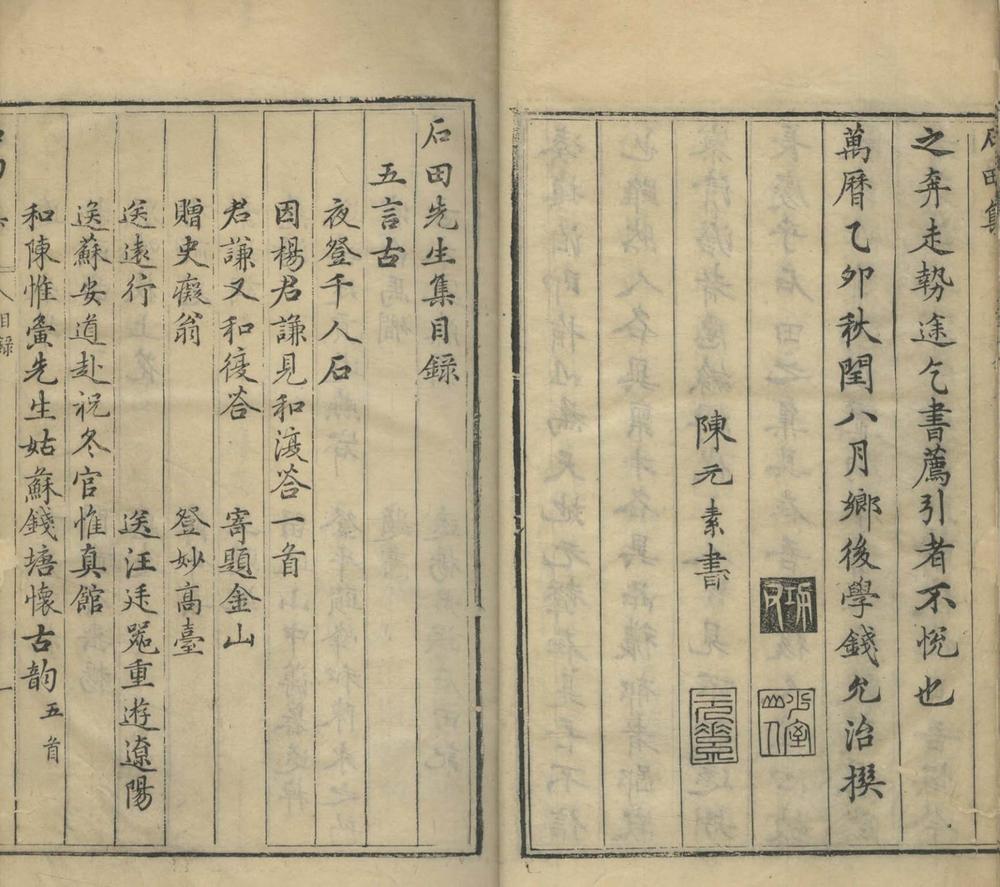 石田集
之奔走勢途乞書薦引者不悅也
萬曆乙卯秋閏八月鄉後學錢允治撰
陳元素書
石田先生集目錄
五言古
夜登千人石
因楊君謙見和漫答一首
君謙又和復答　寄題金山
贈史癡翁　登妙高臺
送遠行　送汪廷器重遊遼陽
送蘇安道赴祝冬官惟真館
和陳惟夤先生姑蘇錢塘懷古韵五首
目錄
一